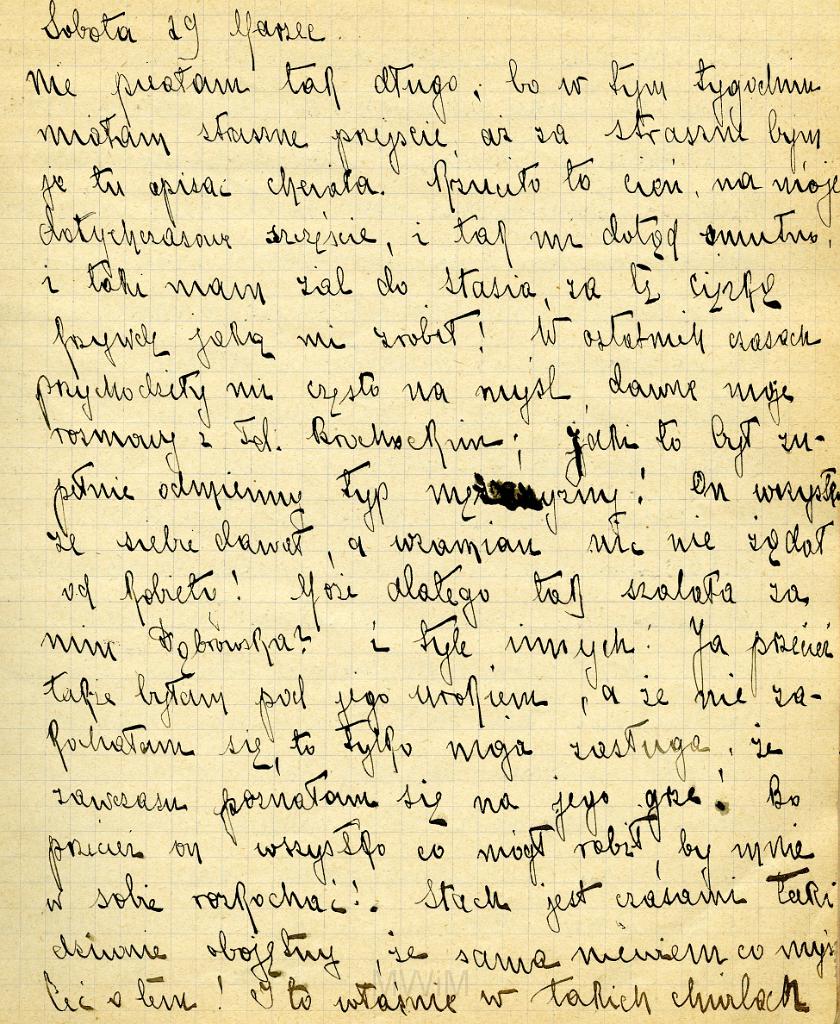 Sobota 19 Marzec.
Nie pisałam tak długo, bo w tym tygodniu
miałam straszne przejście, aż za straszne bym
je tu opisać chciała. Rzuciło to cień, na moje
dotychczasowe szczęście, i tak mi dotąd smutno,
i taki mam żal do Stasia, za tę ciężką
krzywdę jaką mi zrobił! W ostatnich czasach
przychodziły mi często na myśl dawne moje
rozmowy z Brochockim; jaki to był zu-
pełnie odmienny typ mężczyzny! On wszystko
ze siebie dawał, a wzamian nic nie żądał
od kobiety! Może dlatego tak szalała za
nim Dąbrowska? i tyle innych! Ja przecież
także byłam pod jego urokiem, a że nie za-
kochałam się, to tylko moja zasługa, że
zawczasu poznałam się na jego grze! Bo
przecież on wszystko co mógł robił, by mnie
w sobie rozkochać!. Stach jest czasami taki
dziwnie obojętny, że sama niewiem co myś-
leć o tem! I to właśnie w takich chwilach
MWiM